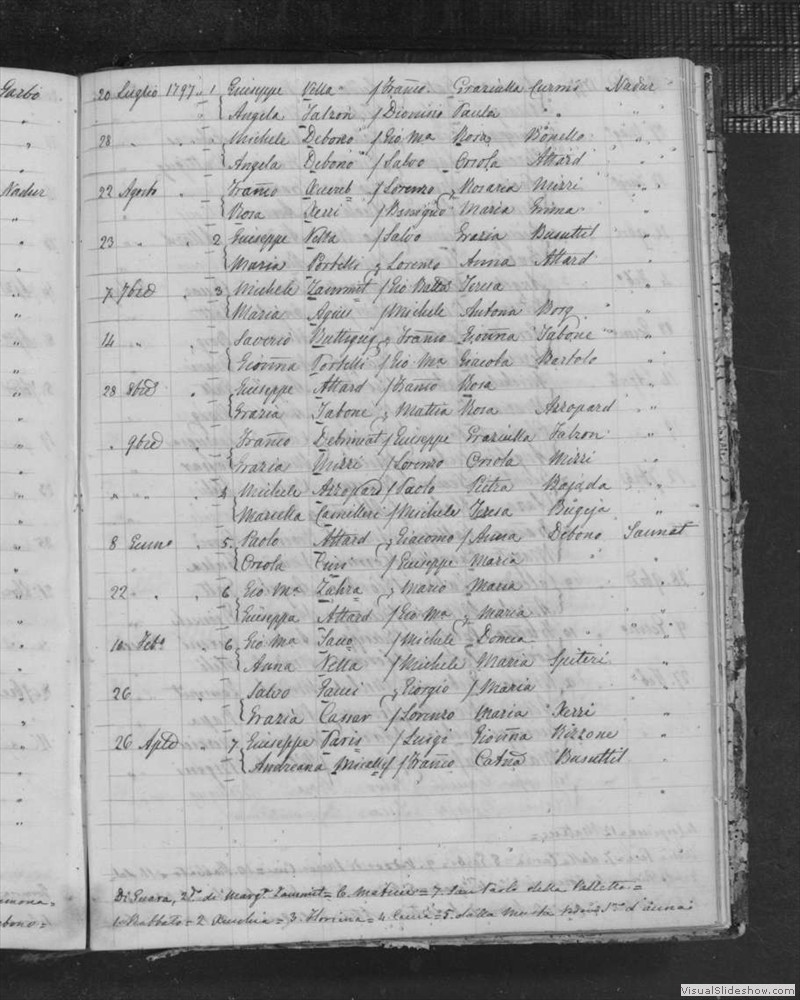 Garbo
Nadur
20 Luglio 1797 1 Giuseppe Vella / Franco Graziulla Curmi Nadur
Angela Falzon / Dionisio Paula
28 Michele Debono / Gio Ma Rosa Bonello
Angela Debono / Salvo Orsola Attard
22 Agosto Franco Xuereb / Lorenzo Rosaria Mizzi
Rosa Xerri / Maria
23 2 Giuseppe Vella / Salvo Grazia Busuttil
Maria Portelli Lorenzo Anna Attard
7 7bre 3 Michele Zammit / Gio Batta Teresa
Maria Agius / Michele Antona Borg
14 Saverio Buttigieg Franco Giovna Tabone
Giovna Portelli / Gio Ma Giacoba Bartolo
28 8bre Giuseppe Attard / Franco Rosa
Grazia Tabone Mattia Rosa Azzopard
9bre Franco Debrincat / Giuseppe Graziulla Falzon
Grazia Mizzi / Lorenzo Orsola Mizzi
4 Michele Azzopard / Paolo Pietra Bajada
Marella Camilleri / Michele Teresa Bugeja
8 Genn 5 Paolo Attard Giacomo / Anna Debono Sannat
Orsola / Giuseppe Maria
22 6 Gio Ma Zahra Mario Maria
Giuseppa Attard / Gio Ma Maria
10 Feb 6 Gio Ma / Michele Domca
Anna Vella / Michele Maria Spiteri
26 Salvo Giorgio / Maria
Grazia Cassar / Lorenzo Maria Xerri
26 Aple 7 Giuseppe Paris / Luigi Giovna Rizzone
Andreana Micallef / Franco Catna Busuttil
2 di Margta Zammit = 6. = 7. San Paolo della Valletta =
1. Rabbato = 2 = 3. = 4. = 5. della
VisualSlideshow.com